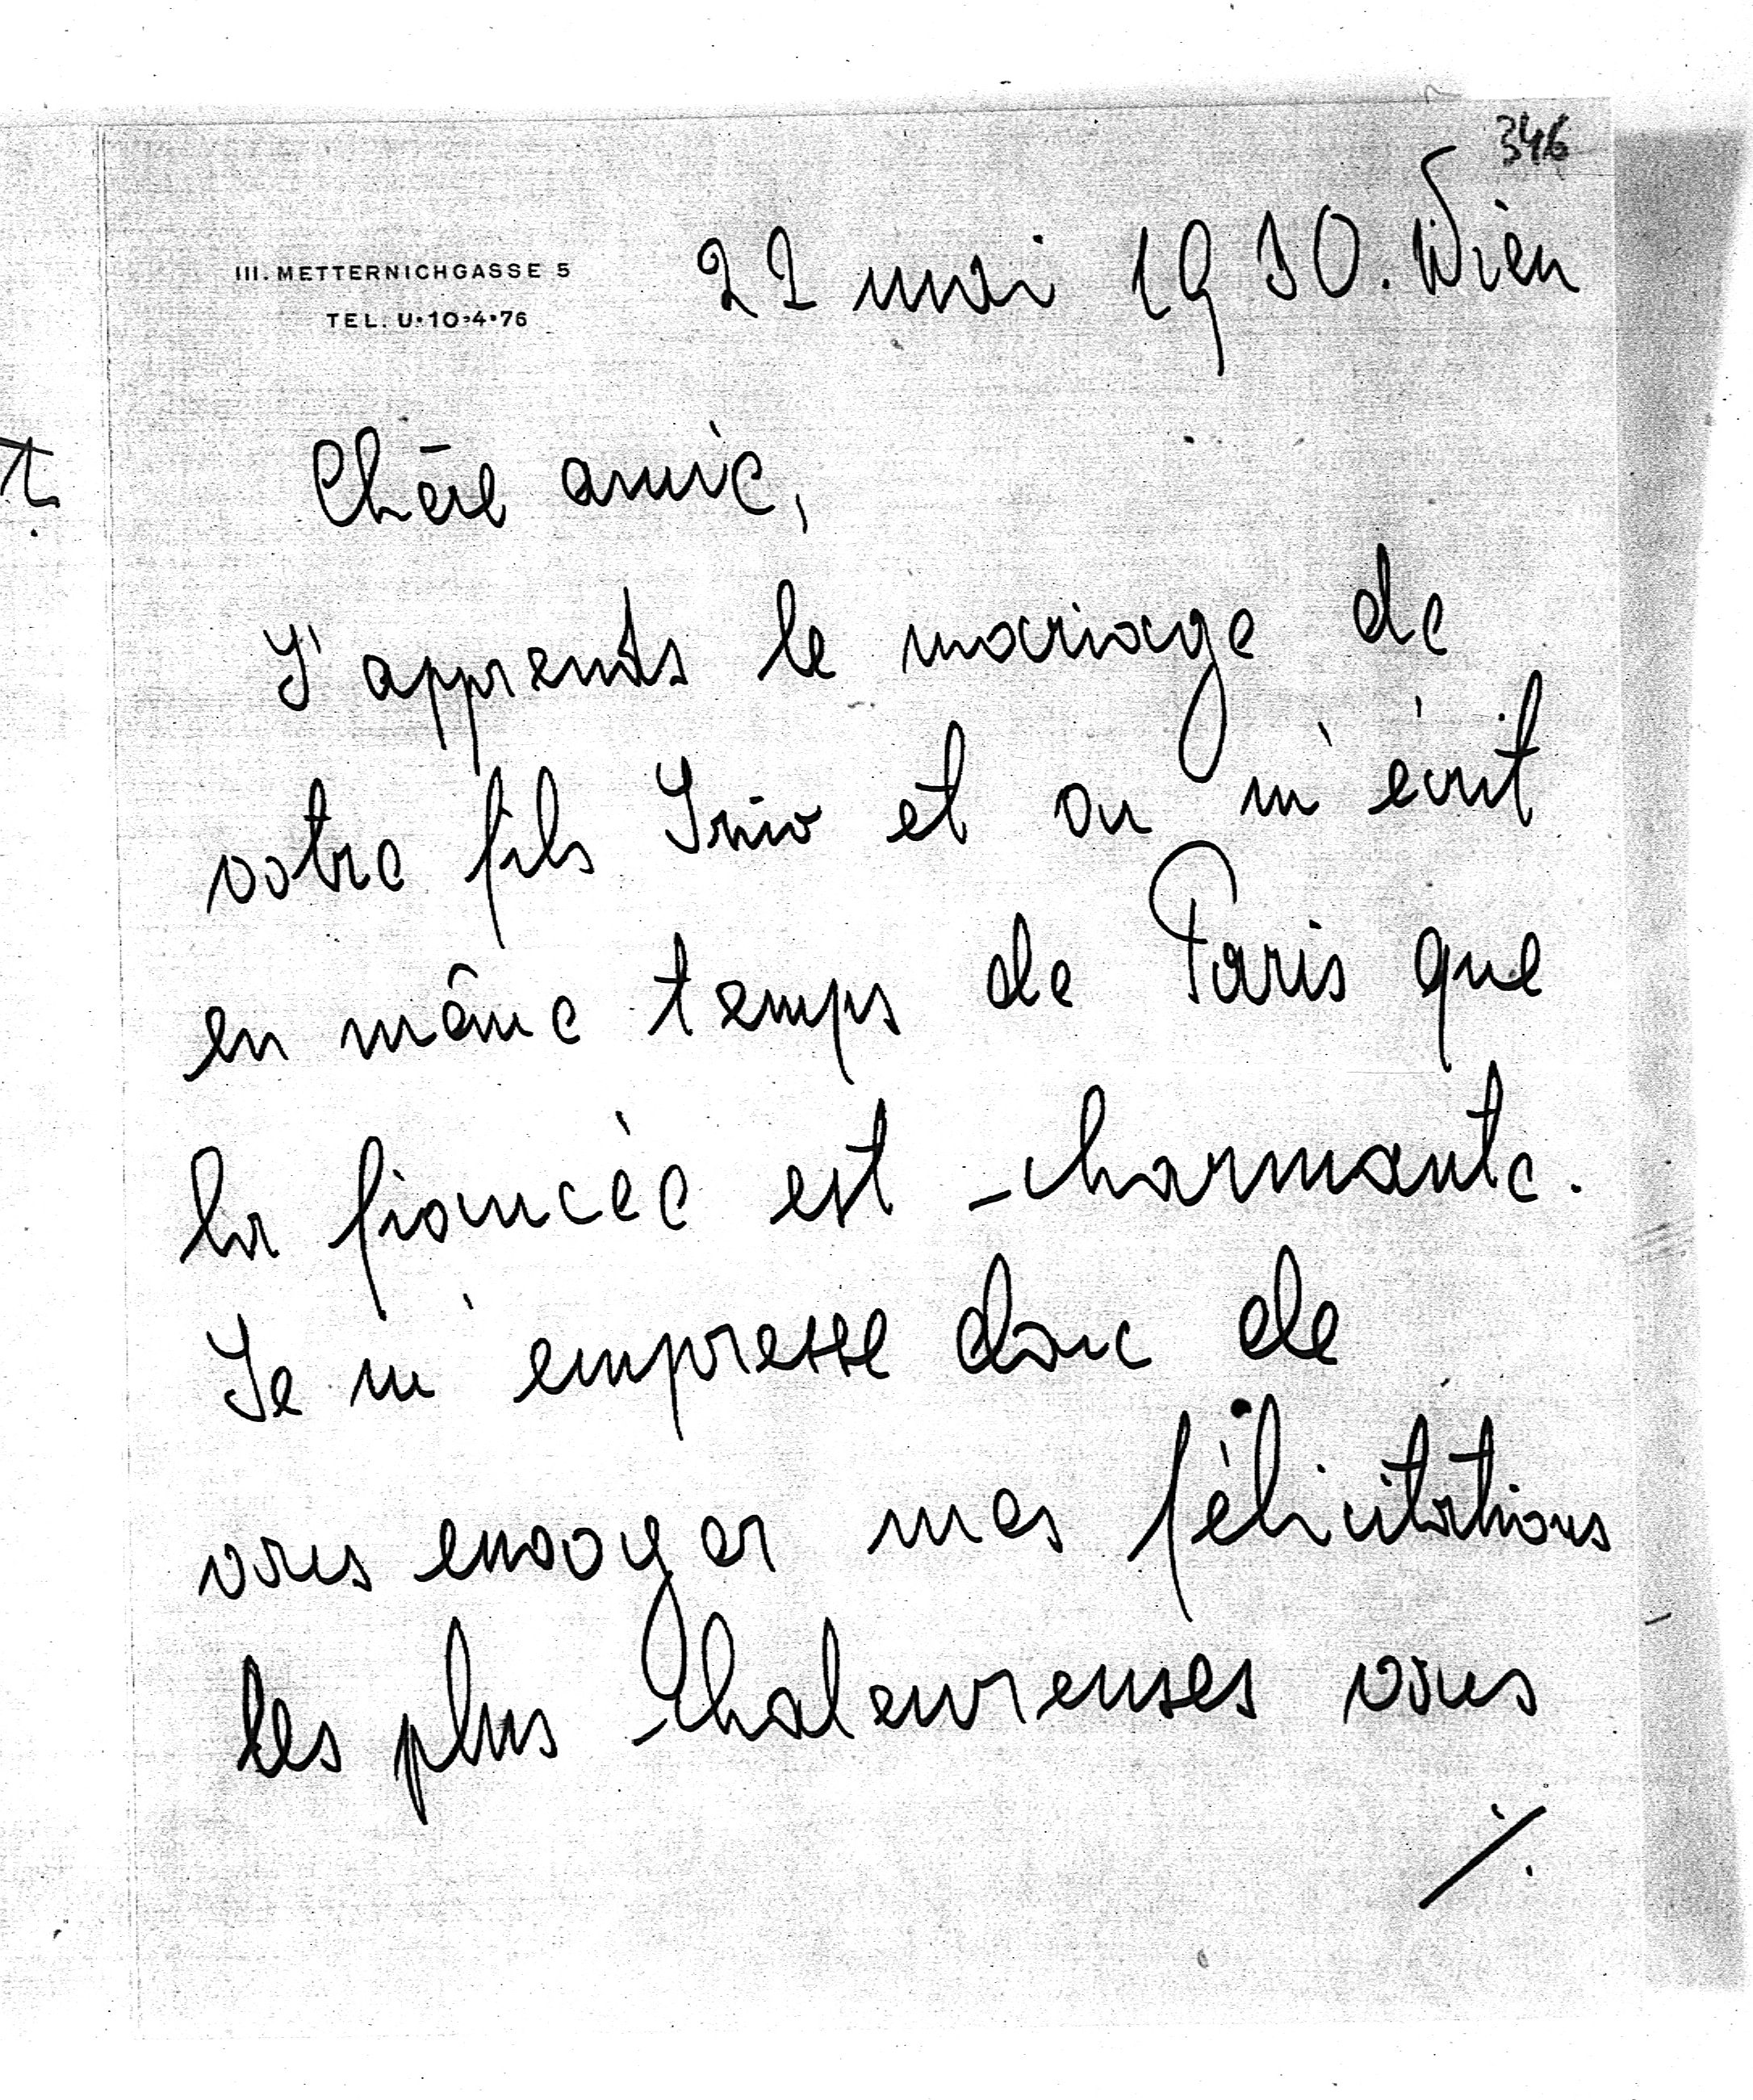 346
III. METTERNICHGASSE 5
TEL. U·10·4·76
22 mai 1930. Wien
Chère amie,
J'apprends le mariage de
votre fils Inio et on m'écrit
en même temps de Paris que
la fiancée est charmante.
Je m'empresse donc de
vous envoyer mes félicitations
les plus chaleureuses vous
./.